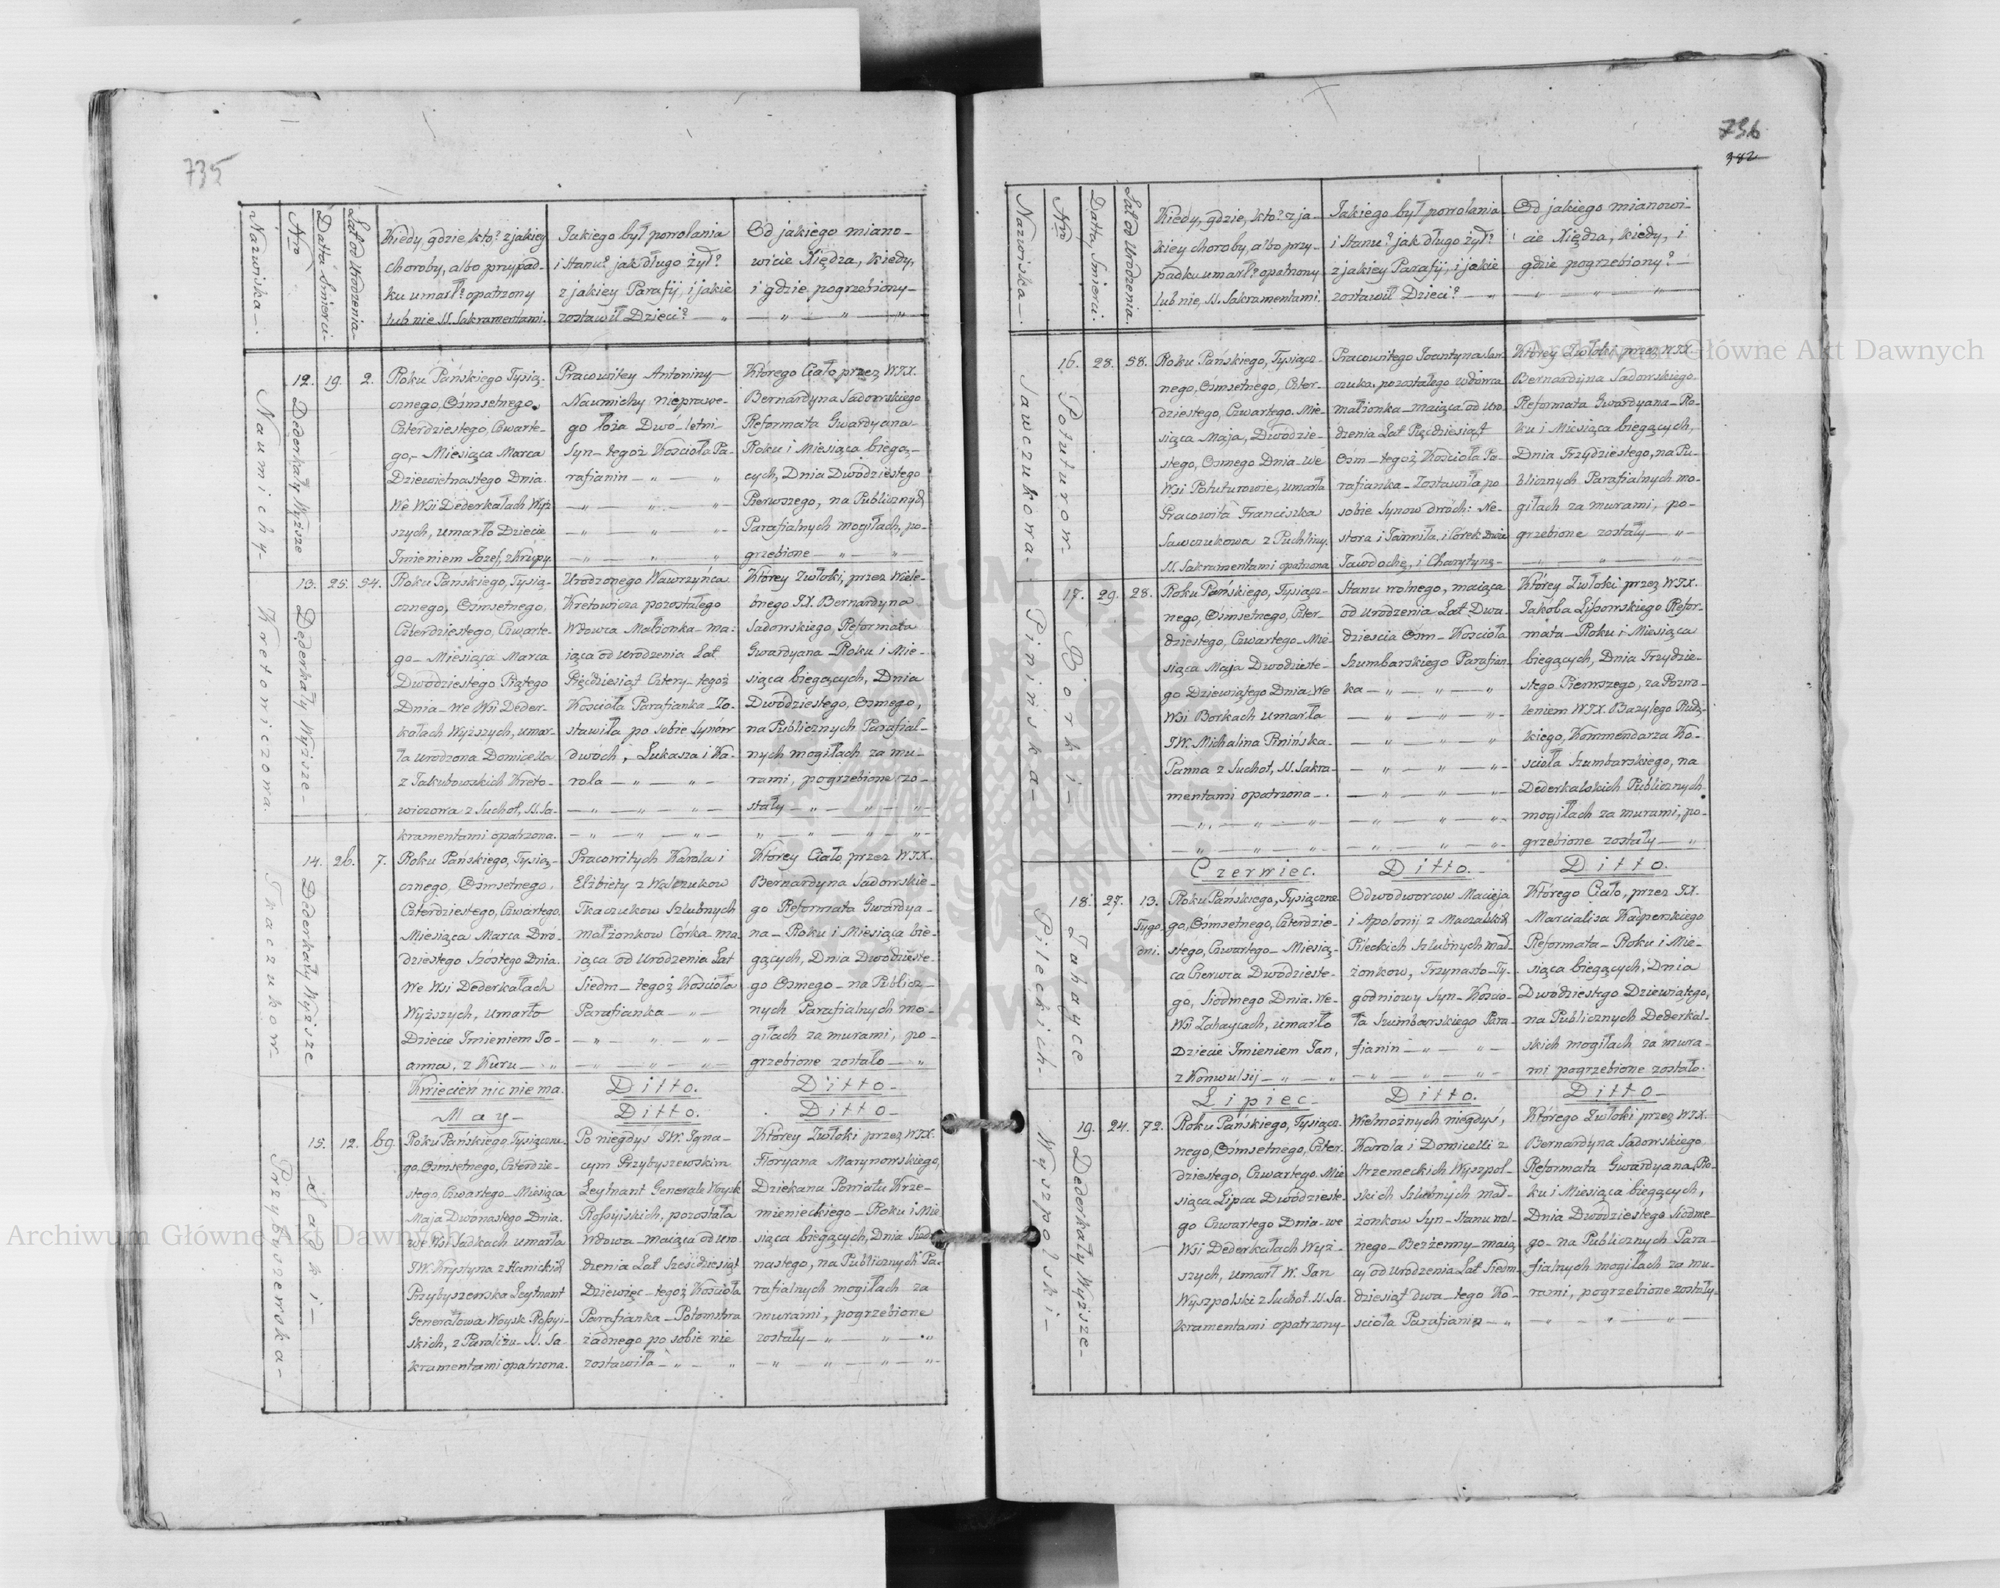 735
Nazwiska
Nro
Datta Śmierci
Lat od Urodzenia
Kiedy, gdzie, kto? z jakiey
choroby, albo przypad-
ku umarł? opatrzony
lub nie SS. Sakramentami.
Jakiego był powołania
i Stanu? jak długo żył?
z jakiey Parafij, i jakie
zostawił Dzieci?
Od jakiego miano-
wicie Xiędza, kiedy,
i gdzie pogrzebiony
Naumichy
12. Dederkały Wyższe
19.
2.
Roku Pańskiego Tysią-
cznego, Osmsetnego,
Czterdziestego, Czwarte-
go, Miesiąca Marca
Dziewietnastego Dnia.
We Wsi Dederkałach Wyż-
szych, umarło Dziecie
Imieniem Józef, z Krupy.
Pracowitey Antoniny
Naumichy nieprawe-
go łoża Dwó-letni
Syn tegoż Kościoła Pa-
rafianin
Którego Ciało przez WJX.
Bernardyna Sadowskiego
Reformata Gwardyana
Roku i Miesiąca bieżą-
cych, Dnia Dwódziestego
Pierwszego, na Publicznych
Parafialnych mogiłach, po-
grzebione
Kretowiczowa
13. Dederkały Wyższe
25.
54.
Roku Pańskiego, Tysią-
cznego, Osmsetnego,
Czterdziestego, Czwarte-
go Miesiąca Marca
Dwódziestego Piątego
Dnia We Wsi Deder-
kałach Wyższych, umar-
ła Urodzona Domicella
z Jakubowskich Kreto-
wiczowa z Suchot, SS. Sa-
kramentami opatrzona.
Urodzonego Wawrzyńca
Kretowicza pozostałego
Wdowca Małżonka ma-
iąca od Urodzenia Lat
Pięćdziesiąt Cztery tegoż
Kościoła Parafianka Zo-
stawiła po sobie Synów
dwóch, Łukasza i Ka-
rola
Którey Zwłoki, przez Wiele-
bnego JX. Bernardyna
Sadowskiego, Reformata
Gwardyana Roku i Mie-
siąca bieżących, Dnia
Dwódziestego, Osmego,
na Publicznych Parafial-
nych mogiłach za mu-
rami, pogrzebione zo-
stały
Tkaczukow
14. Dederkały Wyższe
26.
7.
Roku Pańskiego, Tysią-
cznego, Osmsetnego,
Czterdziestego, Czwartego,
Miesiąca Marca Dwó-
dziestego Szóstego Dnia.
We Wsi Dederkałach
Wyższych, umarło
Dziecie Imieniem Jo-
anna, z Kuru
Pracowitych Karola i
Elżbiety z Walczukow
Tkaczukow Szlubnych
małżonkow Córka ma-
iąca od Urodzenia Lat
Siedm tegoż Kościoła
Parafianka
Którey Ciało, przez WJX.
Bernardyna Sadowskie-
go Reformata Gwardya-
na Roku i Miesiąca bie-
gących, Dnia Dwódzieste-
go Osmego na Public-
nych Parafialnych mo-
giłach za murami, po-
grzebione zostało
Kwiecień nic nie ma.
Ditto.
Ditto
May
Ditto.
Ditto
Przybyszewska
15. Sadki
12.
69.
Roku Pańskiego, Tysiączne-
go, Osmsetnego, Czterdzie-
stego, Czwartego Miesiąca
Maja Dwónastego Dnia.
We Wsi Sadkach umarła
JW. Krystyna z Hanickich
Przybyszewska Leytnant
Generałowa Woysk Rossyi-
skich, z Paraliżu SS. Sa-
kramentami opatrzona.
Po niegdyś JW. Igna-
cym Przybyszewskim
Leytnant Generale Woysk
Rossyiskich, pozostała
Wdowa maiąca od Uro-
dzenia Lat Sześćdziesiąt
Dziewięc tegoż Kościoła
Parafianka Potomstwa
żadnego po sobie nie
zostawiła
Którey Zwłoki przez WJX.
Floryana Marynowskiego,
Dziekana Powiatu Krze-
mienieckiego Roku i Mie-
siąca bieżących, Dnia Siedm-
nastego, na Publicznych Pa-
rafialnych mogiłach za
murami, pogrzebione
zostały
736
382
Nazwiska
Nro
Datta Śmierci
Lat od Urodzenia.
Kiedy, gdzie, kto? z ja-
kiey choroby, albo przy-
padku umarł? opatrzony
lub nie, SS. Sakramentami.
Jakiego był powołania
i Stanu? jak długo żył?
z jakiey Parafij, i jakie
zostawił Dzieci?
Od jakiego mianowi-
cie Xiędza, kiedy, i
gdzie pogrzebiony?
Sawczukowa
16. Poturow
28.
58.
Roku Pańskiego, Tysiącz-
nego, Osmsetnego, Czter-
dziestego, Czwartego. Mie-
siąca Maja, Dwódzie-
stego, Osmego Dnia We
Wsi Potuturowie, umarła
Pracowita Franciszka
Sawczukowa z Puchliny.
SS. Sakramentami opatrzona
Pracowitego Joantyna Saw-
czuka pozostałego Wdowca
małżonka maiąca od Uro-
dzenia Lat Pięćdziesiąt
Osm tegoż Kościoła Pa-
rafianka Zostawiła po
sobie Synow dwóch: Ne-
stora i Jarmiła, i Córek Dwie
Jawdochę, i Charytynę
Którey Zwłoki przez WJX.
Bernardyna Sadowskiego
Reformata Gwardyana Ro-
ku i Miesiąca bieżących,
Dnia Trzydziestego, na Pu-
blicznych Parafialnych mo-
giłach za murami, po-
grzebione zostały
Pinińska
17. Borki
29.
28.
Roku Pańskiego, Tysiącz-
nego, Osmsetnego, Czter-
dziestego, Czwartego Mie-
siąca Maja Dwódzieste-
go Dziewiątego Dnia. We
Wsi Borkach umarła
JW. Michalina Pinińska
Panna z Suchot, SS. Sakra-
mentami opatrzona
Stanu wolnego, maiąca
od Urodzenia Lat Dwa-
dzieścia Osm Kościoła
Szumbarskiego Parafian-
ka
Którey Zwłoki przez WJX.
Jakoba Lissowskiego Refor-
mata Roku i Miesiąca
bieżących, Dnia Trzydzie-
stego Pierwszego, za Pozwo-
leniem WJX. Bazylego Rudz-
kiego, Kommendarza Ko-
ścioła Szumbarskiego, na
Dederkalskich Publicznych
mogiłach za murami, po-
grzebione zostały
Czerwiec.
Ditto.
Ditto.
Pileckich
18. Zahayce
27.
13.
Tygo
dni.
Roku Pańskiego, Tysiączne-
go, Osmsetnego, Czterdzie-
stego, Czwartego Miesią-
ca Czerwca Dwódzieste-
go, Siódmego Dnia. We
Wsi Zahaycach, umarło
Dziecie Imieniem Jan,
z Konwulsij
Odwodworcow Macieja
i Apolonij z Maczalskich
Pileckich Szlubnych mał-
żonkow, Trzynasto-Ty-
godniowy Syn Kościo-
ła Szumbarskiego Para-
fianin
Którego Ciało, przez JX.
Marcialisa Kasperskiego
Reformata Roku i Mie-
siąca bieżących, Dnia
Dwódziestego Dziewiątego,
na Publicznych Dederkal-
skich mogiłach za mura-
mi pogrzebione zostało.
Lipiec
Ditto.
Ditto
Wyszpolski
19. Dederkały Wyższe
24.
72.
Roku Pańskiego, Tysiącz-
nego, Osmsetnego, Czter-
dziestego, Czwartego Mie-
siąca Lipca Dwódzieste-
go Czwartego Dnia We
Wsi Dederkałach Wyż-
szych, umarł W. Jan
Wyszpolski z Suchot. SS. Sa-
kramentami opatrzony
Wielmożnych niegdyś,
Karola i Domicelli z
Strzemeckich Wyszpol-
skich Szlubnych mał-
żonkow Syn Stanu wol-
nego Bezżenny maią-
cy od Urodzenia Lat Siedm-
dziesiąt dwa tego Ko-
ścioła Parafianin
Którego Zwłoki przez WJX.
Bernardyna Sadowskiego
Reformata Gwardyana, Ro-
ku i Miesiąca bieżących,
Dnia Dwódziestego Siódme-
go na Publicznych Para-
fialnych mogiłach za mu-
rami, pogrzebione zostały
Archiwum Główne Akt Dawnych
Archiwum Główne Akt Dawnych